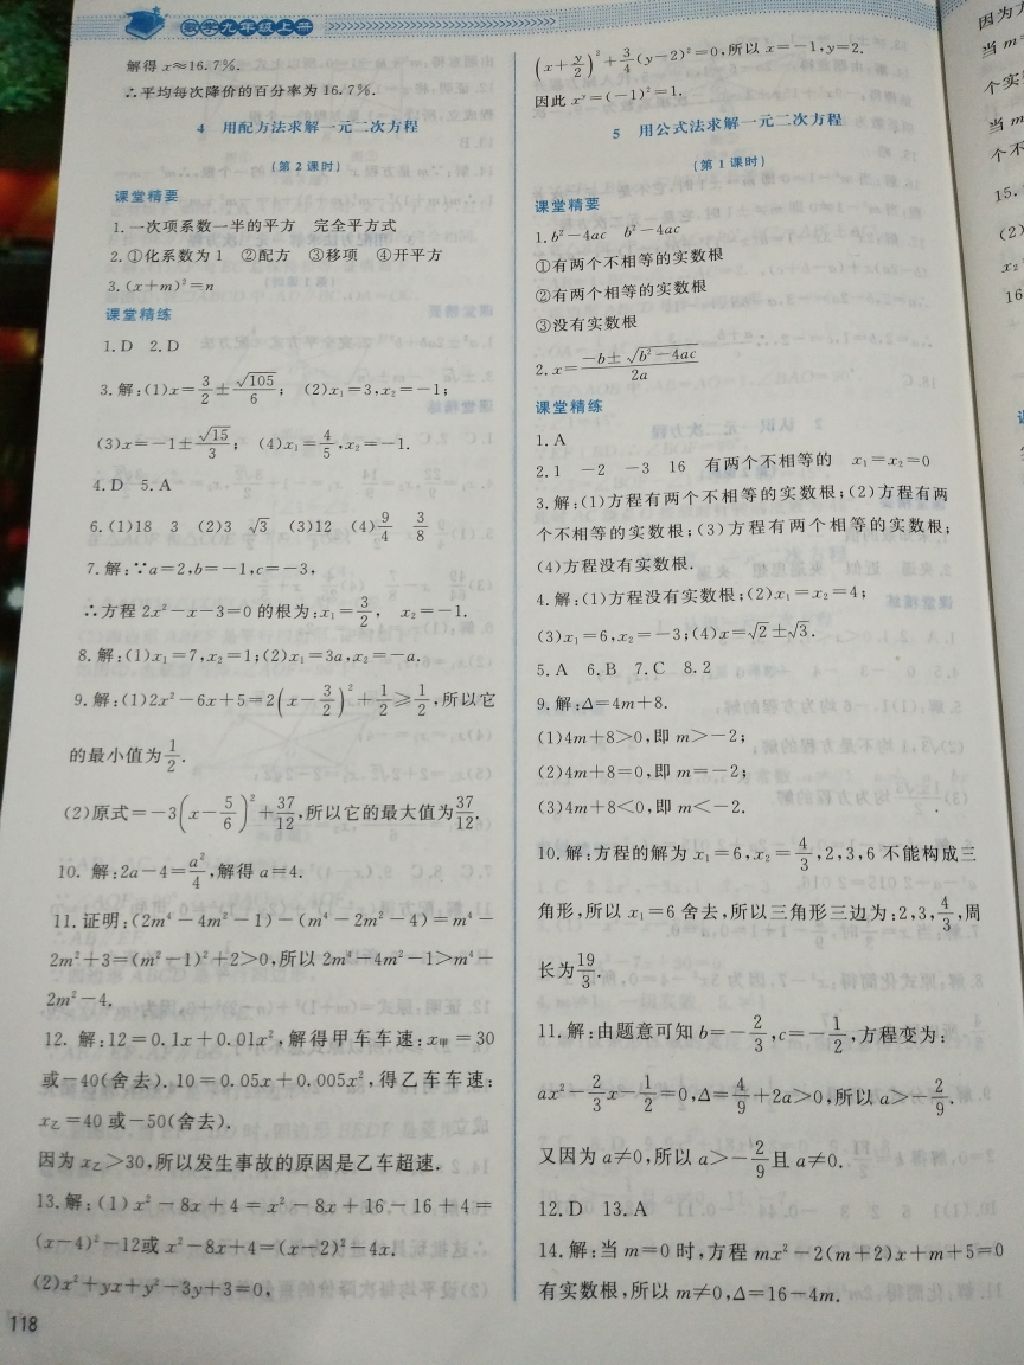 数学九年级上册
解得 x≈16.7%.
∴平均每次降价的百分率为 16.7%.
4 用配方法求解一元二次方程
(第2课时)
课堂精要
1.一次项系数一半的平方 完全平方式
2.①化系数为1 ②配方 ③移项 ④开平方
3.(x+m)²=n
课堂精练
1.D 2.D
3.解:(1)x=3/2±√105/6; (2)x₁=3,x₂=-1;
(3)x=-1±√15/3; (4)x₁=4/5,x₂=-1.
4.D 5.A
6.(1)18 3 (2)3 √3 (3)12 (4)9/4 3/8
7.解:∵a=2,b=-1,c=-3,
∴方程 2x²-x-3=0 的根为:x₁=3/2, x₂=-1.
8.解:(1)x₁=7,x₂=1;(2)x₁=3a,x₂=-a.
9.解:(1)2x²-6x+5=2(x-3/2)²+1/2≥1/2,所以它
的最小值为1/2.
(2)原式=-3(x-5/6)²+37/12,所以它的最大值为37/12.
10. 解:2a-4=a²/4,解得 a=4.
11.证明:(2m⁴-4m²-1)-(m⁴-2m²-4)=m⁴-
2m²+3=(m²-1)²+2>0,所以 2m⁴-4m²-1>m⁴-
2m²-4.
12. 解:12=0.1x+0.01x²,解得甲车车速:x甲=30
或-40(舍去).10=0.05x+0.005x²,得乙车车速:
x乙=40或-50(舍去).
因为 x乙>30,所以发生事故的原因是乙车超速.
13.解:(1)x²-8x+4=x²-8x+16-16+4=
(x-4)²-12或 x²-8x+4=(x-2)²-4x.
(2)x²+yx+y²-3y+3=0,
118
(x+y/2)²+3/4(y-2)²=0,所以 x=-1,y=2.
因此 xʸ=(-1)²=1.
5 用公式法求解一元二次方程
(第1课时)
课堂精要
1.b²-4ac b²-4ac
①有两个不相等的实数根
②有两个相等的实数根
③没有实数根
2.x=-b±√b²-4ac/2a
课堂精练
1.A
2.1 -2 -3 16 有两个不相等的 x₁=x₂=0
3.解:(1)方程有两个不相等的实数根;(2)方程有两
个不相等的实数根;(3)方程有两个相等的实数根;
(4)方程没有实数根.
4.解:(1)方程没有实数根;(2)x₁=x₂=4;
(3)x₁=6,x₂=-3;(4)x=√2±√3.
5.A 6.B 7.C 8.2
9.解:Δ=4m+8.
(1)4m+8>0,即 m>-2;
(2)4m+8=0,即 m=-2;
(3)4m+8<0,即 m<-2.
10.解:方程的解为 x₁=6,x₂=4/3,2,3,6不能构成三
角形,所以 x₁=6舍去,所以三角形三边为:2,3,4/3,周
长为19/3.
11.解:由题意可知 b=-2/3,c=-1/2,方程变为:
ax²-2/3x-1/2=0,Δ=4/9+2a>0,所以 a>-2/9.
又因为 a≠0,所以 a>-2/9且 a≠0.
12.D 13.A
14.解:当 m=0 时,方程 mx²-2(m+2)x+m+5=0
有实数根,所以 m≠0,Δ=16-4m.
因为
当 m
个实
当 m
个不
15.
(2)
x₂
16